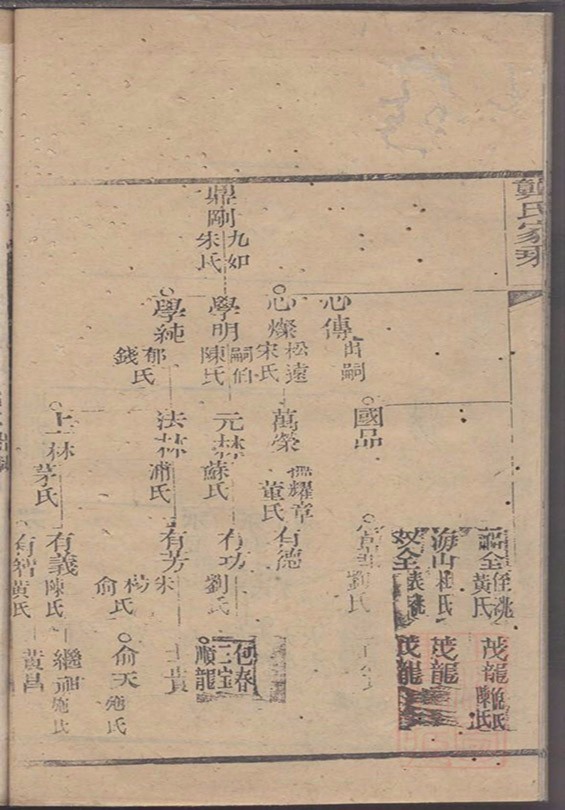 鄭氏家乘
鼎剛
九如
朱氏
心傳
出嗣
心燦
松遠
宋氏
學明
嗣伯
陳氏
學純
郁氏
錢
國品
萬榮
耀章
董氏
元林
蘇氏
法林
浦氏
上林
茅氏
全
黃氏
海山
氏
全
劉氏
有德
有功
劉氏
有芳
朱
楊氏
俞
有義
陳氏
有智
黃氏
茂龍
陳氏
茂龍
茂龍
包春
三宝
順龍
士貴
俞天
施氏
繼
施氏
黃昌